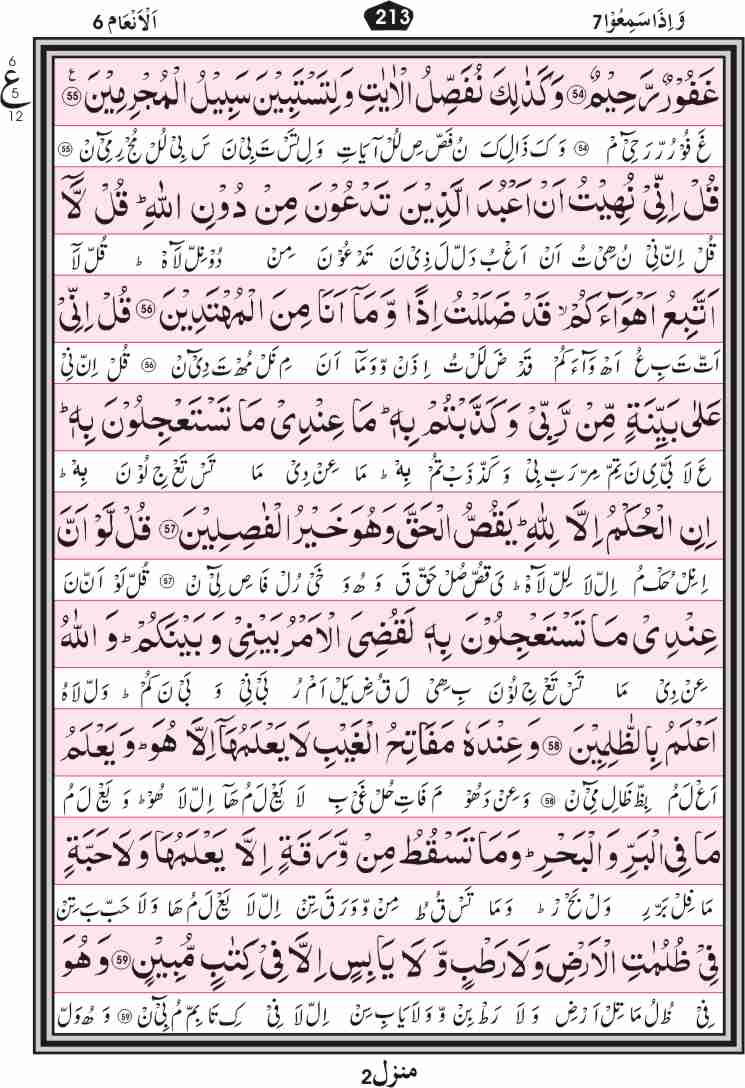 وَاِذَاسَمِعُوْا7 213 اَلْاَنْعَام 6
6
ع
5
12
غَفُوْرٌ رَّحِيْمٌ ﴿54﴾ وَكَذٰلِكَ نُفَصِّلُ الْاٰيٰتِ وَلِتَسْتَبِيْنَ سَبِيْلُ الْمُجْرِمِيْنَ ﴿55﴾ ع
غَ فُوْ رُ رْ رَ حِيْٓ مْ ﴿54﴾ وَ كَ ذَالِ كَ نُ فَصْ صِ لُلْ آيَاتِ وَ لِ تَسْ تَ بِىْ نَ سَ بِىْ لُلْ مُجْ رِ مِىْٓ نْ ﴿55﴾
قُلْ اِنِّىْ نُهِيْتُ اَنْ اَعْبُدَ الَّذِيْنَ تَدْعُوْنَ مِنْ دُوْنِ اللّٰهِ ؕ قُلْ لَّاۤ
قُلْ اِنْ نِىْ نُ هِىْ تُ اَنْ اَعْ بُ دَلْ لَ ذِىْ نَ تَدْ عُوْ نَ مِنْ دُوْ نِلْ لَاٰهْ ؕ قُلْ لَآ
اَتَّبِعُ اَهْوَآءَكُمْ ۙ قَدْ ضَلَلْتُ اِذًا وَّمَاۤ اَنَا مِنَ الْمُهْتَدِيْنَ ﴿56﴾ قُلْ اِنِّىْ
اَتْ تَ بِ عُ اَهْ وَآءَ كُمْ قَدْ ضَ لَلْ تُ اِذَنْ وْ وَمَآ اَنَ مِ نَلْ مُهْ تَ دِىْٓ نْ ﴿56﴾ قُلْ اِنْ نِىْ
عَلٰى بَيِّنَةٍ مِّنْ رَّبِّىْ وَكَذَّبْتُمْ بِهٖ ؕ مَا عِنْدِىْ مَا تَسْتَعْجِلُوْنَ بِهٖ ؕ
عَ لَا بَىْ ىِ نَ تِمْ مِرْ رَبْ بِىْ وَ كَذْ ذَبْ تُمْ بِهْ ؕ مَا عِنْ دِىْ مَا تَسْ تَعْ جِ لُوْ نَ بِهْ ؕ
اِنِ الْحُكْمُ اِلَّا لِلّٰهِ ؕ يَقُصُّ الْحَقَّ وَهُوَ خَيْرُ الْفٰصِلِيْنَ ﴿57﴾ قُلْ لَّوْ اَنَّ
اِ نِلْ حُكْ مُ اِلْ لَا لِلْ لَاٰهْ ؕ ىَ قُصْ صُلْ حَقْ قَ وَ هُ وَ خَىْ رُلْ فَا صِ لِىْٓ نْ ﴿57﴾ قُلْ لَوْ اَنْ نَ
عِنْدِىْ مَا تَسْتَعْجِلُوْنَ بِهٖ لَقُضِىَ الْاَمْرُ بَيْنِىْ وَبَيْنَكُمْ ؕ وَاللّٰهُ
عِنْ دِىْ مَا تَسْ تَعْ جِ لُوْ نَ بِ هِىْ لَ قُ ضِ يَلْ اَمْ رُ بَىْ نِىْ وَ بَىْ نَ كُمْ ؕ وَلْ لَاهُ
اَعْلَمُ بِالظّٰلِمِيْنَ ﴿58﴾ وَعِنْدَهٗ مَفَاتِحُ الْغَيْبِ لَا يَعْلَمُهَاۤ اِلَّا هُوَ ؕ وَيَعْلَمُ
اَعْ لَ مُ بِظْ ظَالِ مِىْٓ نْ ﴿58﴾ وَ عِنْ دَ هُوْ مَ فَاتِ حُلْ غَىْ بِ لَا يَعْ لَ مُ هَآ اِلْ لَا هُوْ ؕ وَ يَعْ لَ مُ
مَا فِى الْبَرِّ وَالْبَحْرِ ؕ وَمَا تَسْقُطُ مِنْ وَّرَقَةٍ اِلَّا يَعْلَمُهَا وَلَا حَبَّةٍ
مَا فِلْ بَرْ رِ وَلْ بَحْ رْ ؕ وَ مَا تَسْ قُ طُ مِنْ وْ وَ رَ قَ تِنْ اِلْ لَا يَعْ لَ مُ هَا وَ لَا حَبْ بَ تِنْ
فِىْ ظُلُمٰتِ الْاَرْضِ وَلَا رَطْبٍ وَّلَا يَابِسٍ اِلَّا فِىْ كِتٰبٍ مُّبِيْنٍ ﴿59﴾ وَهُوَ
فِىْ ظُ لُ مَا تِلْ اَرْ ضِ وَ لَا رَطْ بِنْ وْ وَ لَا يَا بِ سِنْ اِلْ لَا فِىْ كِ تَا بِمْ مُ بِىْٓ نْ ﴿59﴾ وَ هُ وَلْ
منزل2